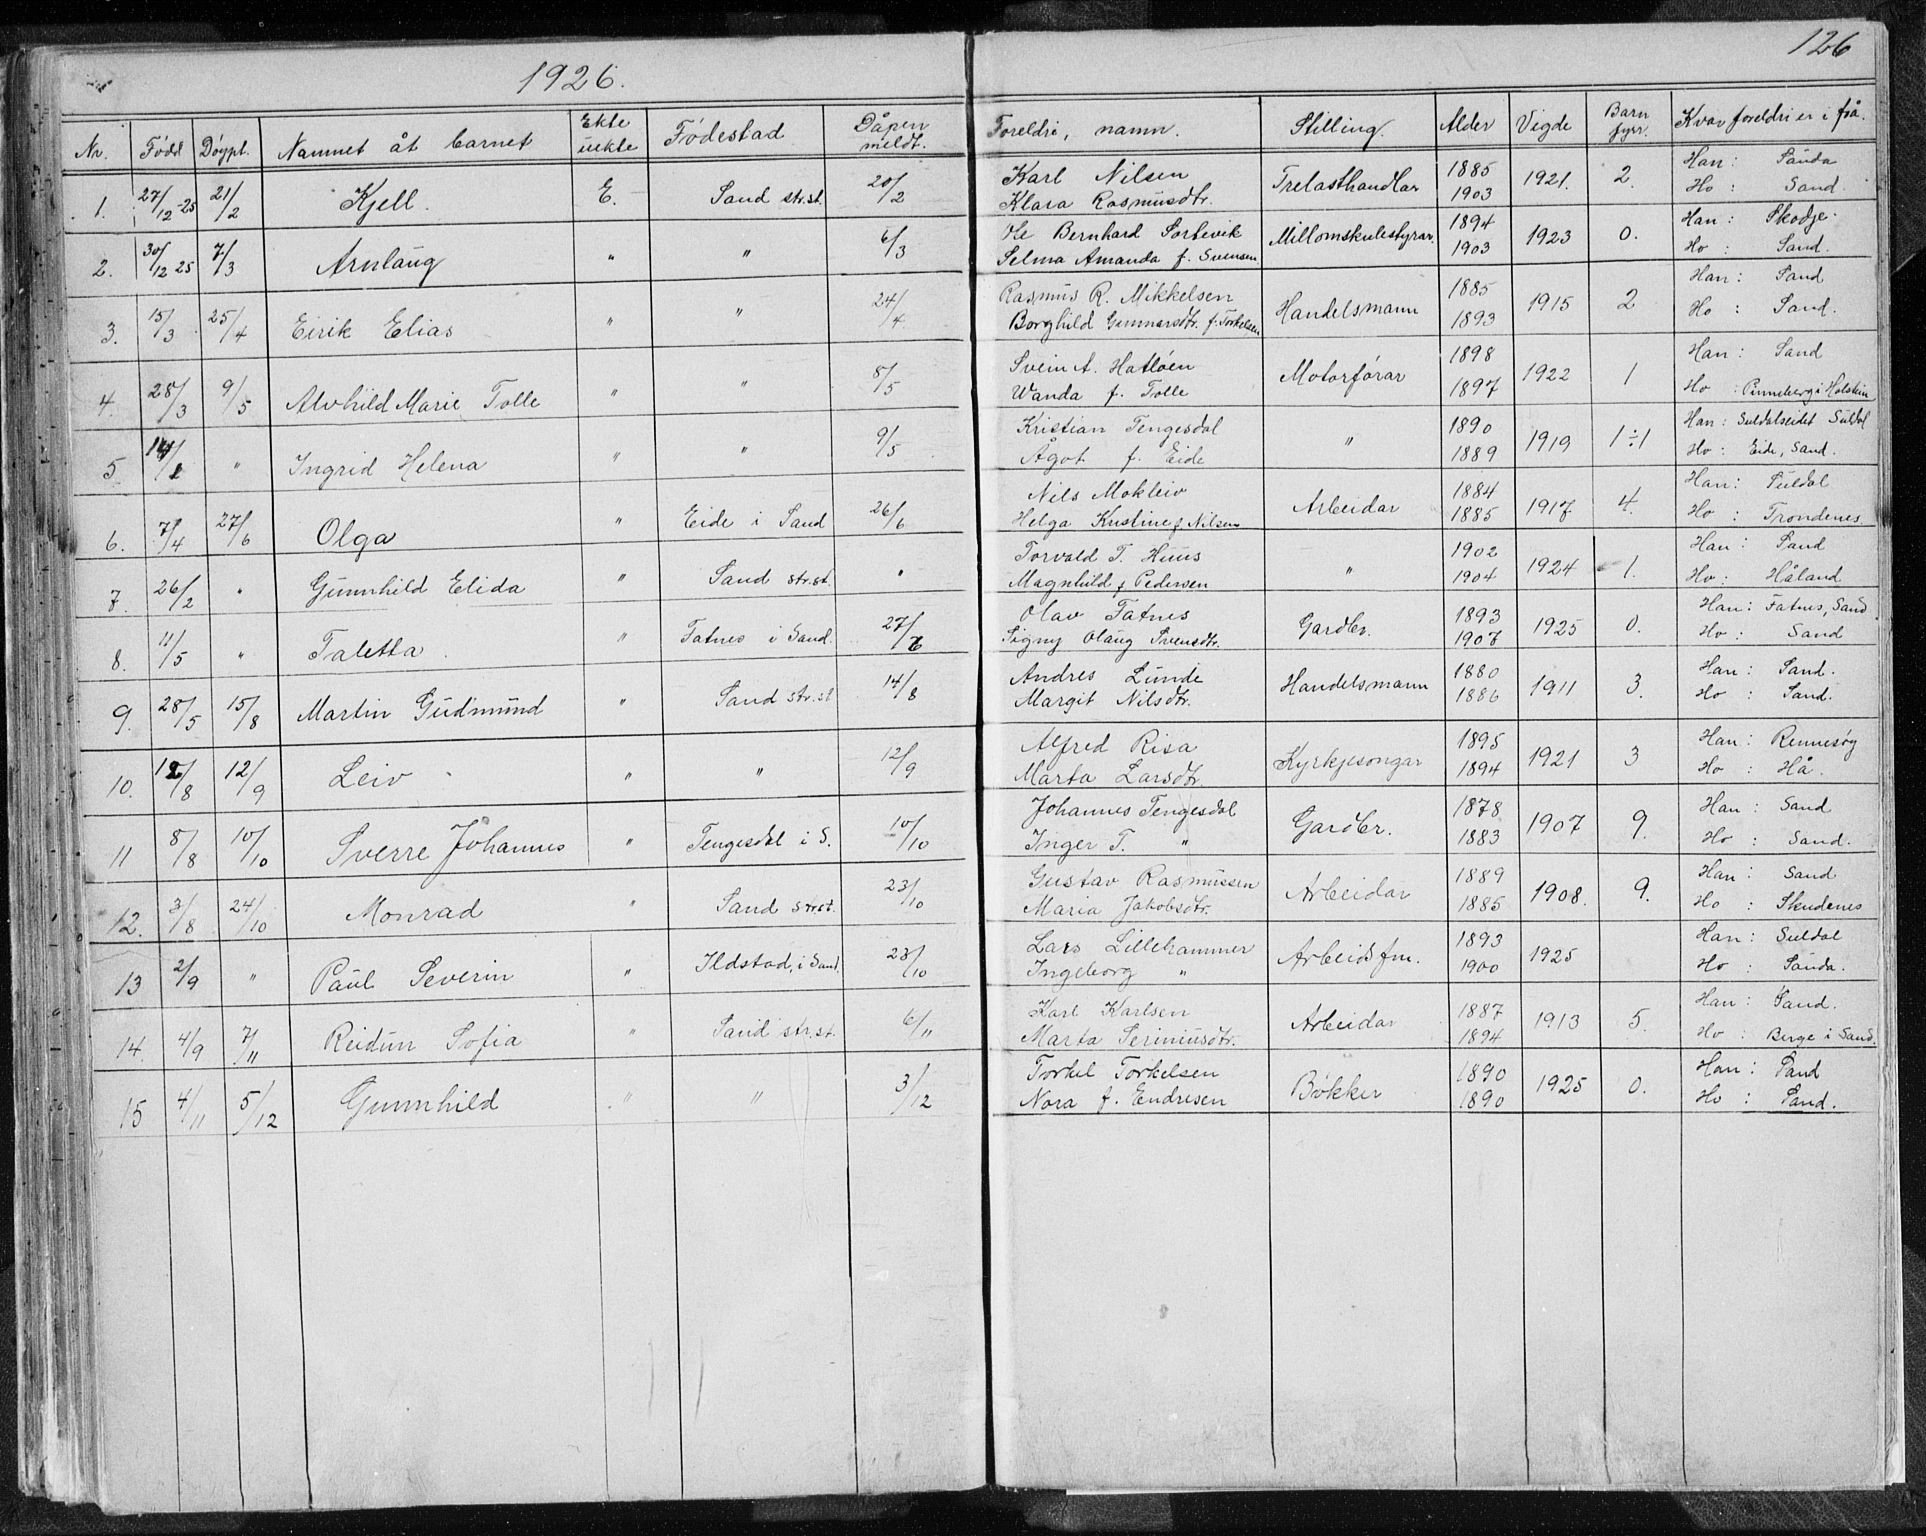 1926.
126
Nr. Fødd Døypt. Namnet åt barnet Ekte uekte Fødestad Dåpen meldt. Foreldri, namn. Stilling. Alder Vigde Barn fyrr. Kvar foreldri er i frå.
1. 27/12-25 21/2 Kjell. E. Sand str.st. 20/2 Karl Nilsen Trelasthandlar 1885 1921. 2. Han: Sauda
Klara Rasmusdtr. 1903 Ho: Sand.
2. 30/12 25 7/3 Arnlaug " " 6/3 Ole Bernhard Sortevik Millomskulestyrar. 1894 1923 0. Han: Skodje.
Selma Amanda f. Svensen 1903 Ho: Sand.
3. 15/3 25/4 Eirik Elias " " 24/4 Rasmus R. Mikkelsen Handelsmann 1885 1915 2 Han: Sand
Borghild Gunnarsdtr. f. Torkelsen 1893 Ho: Sand.
4. 28/3 9/5 Alvhild Marie Tolle " " 8/5 Svein A. Hatløen Motorførar 1898 1922 1 Han: Sand
Wanda f. Tolle 1897 Ho: Pinneberg i Holstein
5 " Ingrid Helena " " 9/5 Kristian Tengesdal " 1890 1919 1÷1 Han: Suldalseidet Suldal
Ågot f. Eide 1889 Ho: Eide, Sand.
6. 7/4 27/6 Olga " Eide i Sand 26/6 Nils Mokleiv Arbeidar 1884 1917 4. Han: Suldal
Helga Kristine f Nilsen 1885 Ho: Trondenes
7. 26/2 " Gunnhild Elida " Sand str.st. " Torvald T. Huus " 1902 1924 1. Han: Sand
Magnhild f Pedersen 1904 Ho: Håland
8. 11/5 " Taletta. " Fatnes i Sand. 27/6 Olav Fatnes Gardbr. 1893 1925 0. Han: Fatnes, Sand
Signy Olaug Svensdtr. 1907 Ho: Sand
9. 28/5 15/8 Martin Gudmund " Sand str.st 14/8 Andres Lunde Handelsmann 1880 1911 3. Han: Sand.
Margit Nilsdtr. 1886 Ho: Sand.
10. 12/8 12/9 Leiv " " 12/9 Alfred Risa Kyrkjesongar 1895 1921 3 Han: Rennesøy
Marta Larsdtr. 1894 Ho: Hå.
11 8/8 10/10 Sverre Johannes " Tengesdal i S. 10/10 Johannes Tengesdal Gardbr. 1878 1907 9. Han: Sand
Inger T. " 1883 Ho: Sand.
12. 3/8 24/10 Monrad " Sand str.st. 23/10 Gustav Rasmussen Arbeidar 1889 1908. 9. Han: Sand
Maria Jakobsdtr. 1885 Ho: Skudenes
13 2/9 " Paul Severin " Ildstad, i Sand. 23/10 Lars Lillehammer Arbeidsfm. 1893 1925 Han: Suldal
Ingeborg " 1900 Ho: Sauda.
14. 4/9 7/11 Reidun Sofia " Sand str.st. 6/11 Karl Karlsen Arbeidar 1887 1913 5. Han: Sand.
Marta Seriniusdtr. 1894 Ho: Berge i Sand.
15 4/11 5/12 Gunnhild " " 3/12 Torkel Torkelsen Bøkker 1890 1925 0. Han: Sand
Nora f. Endresen 1890 Ho: Sand.